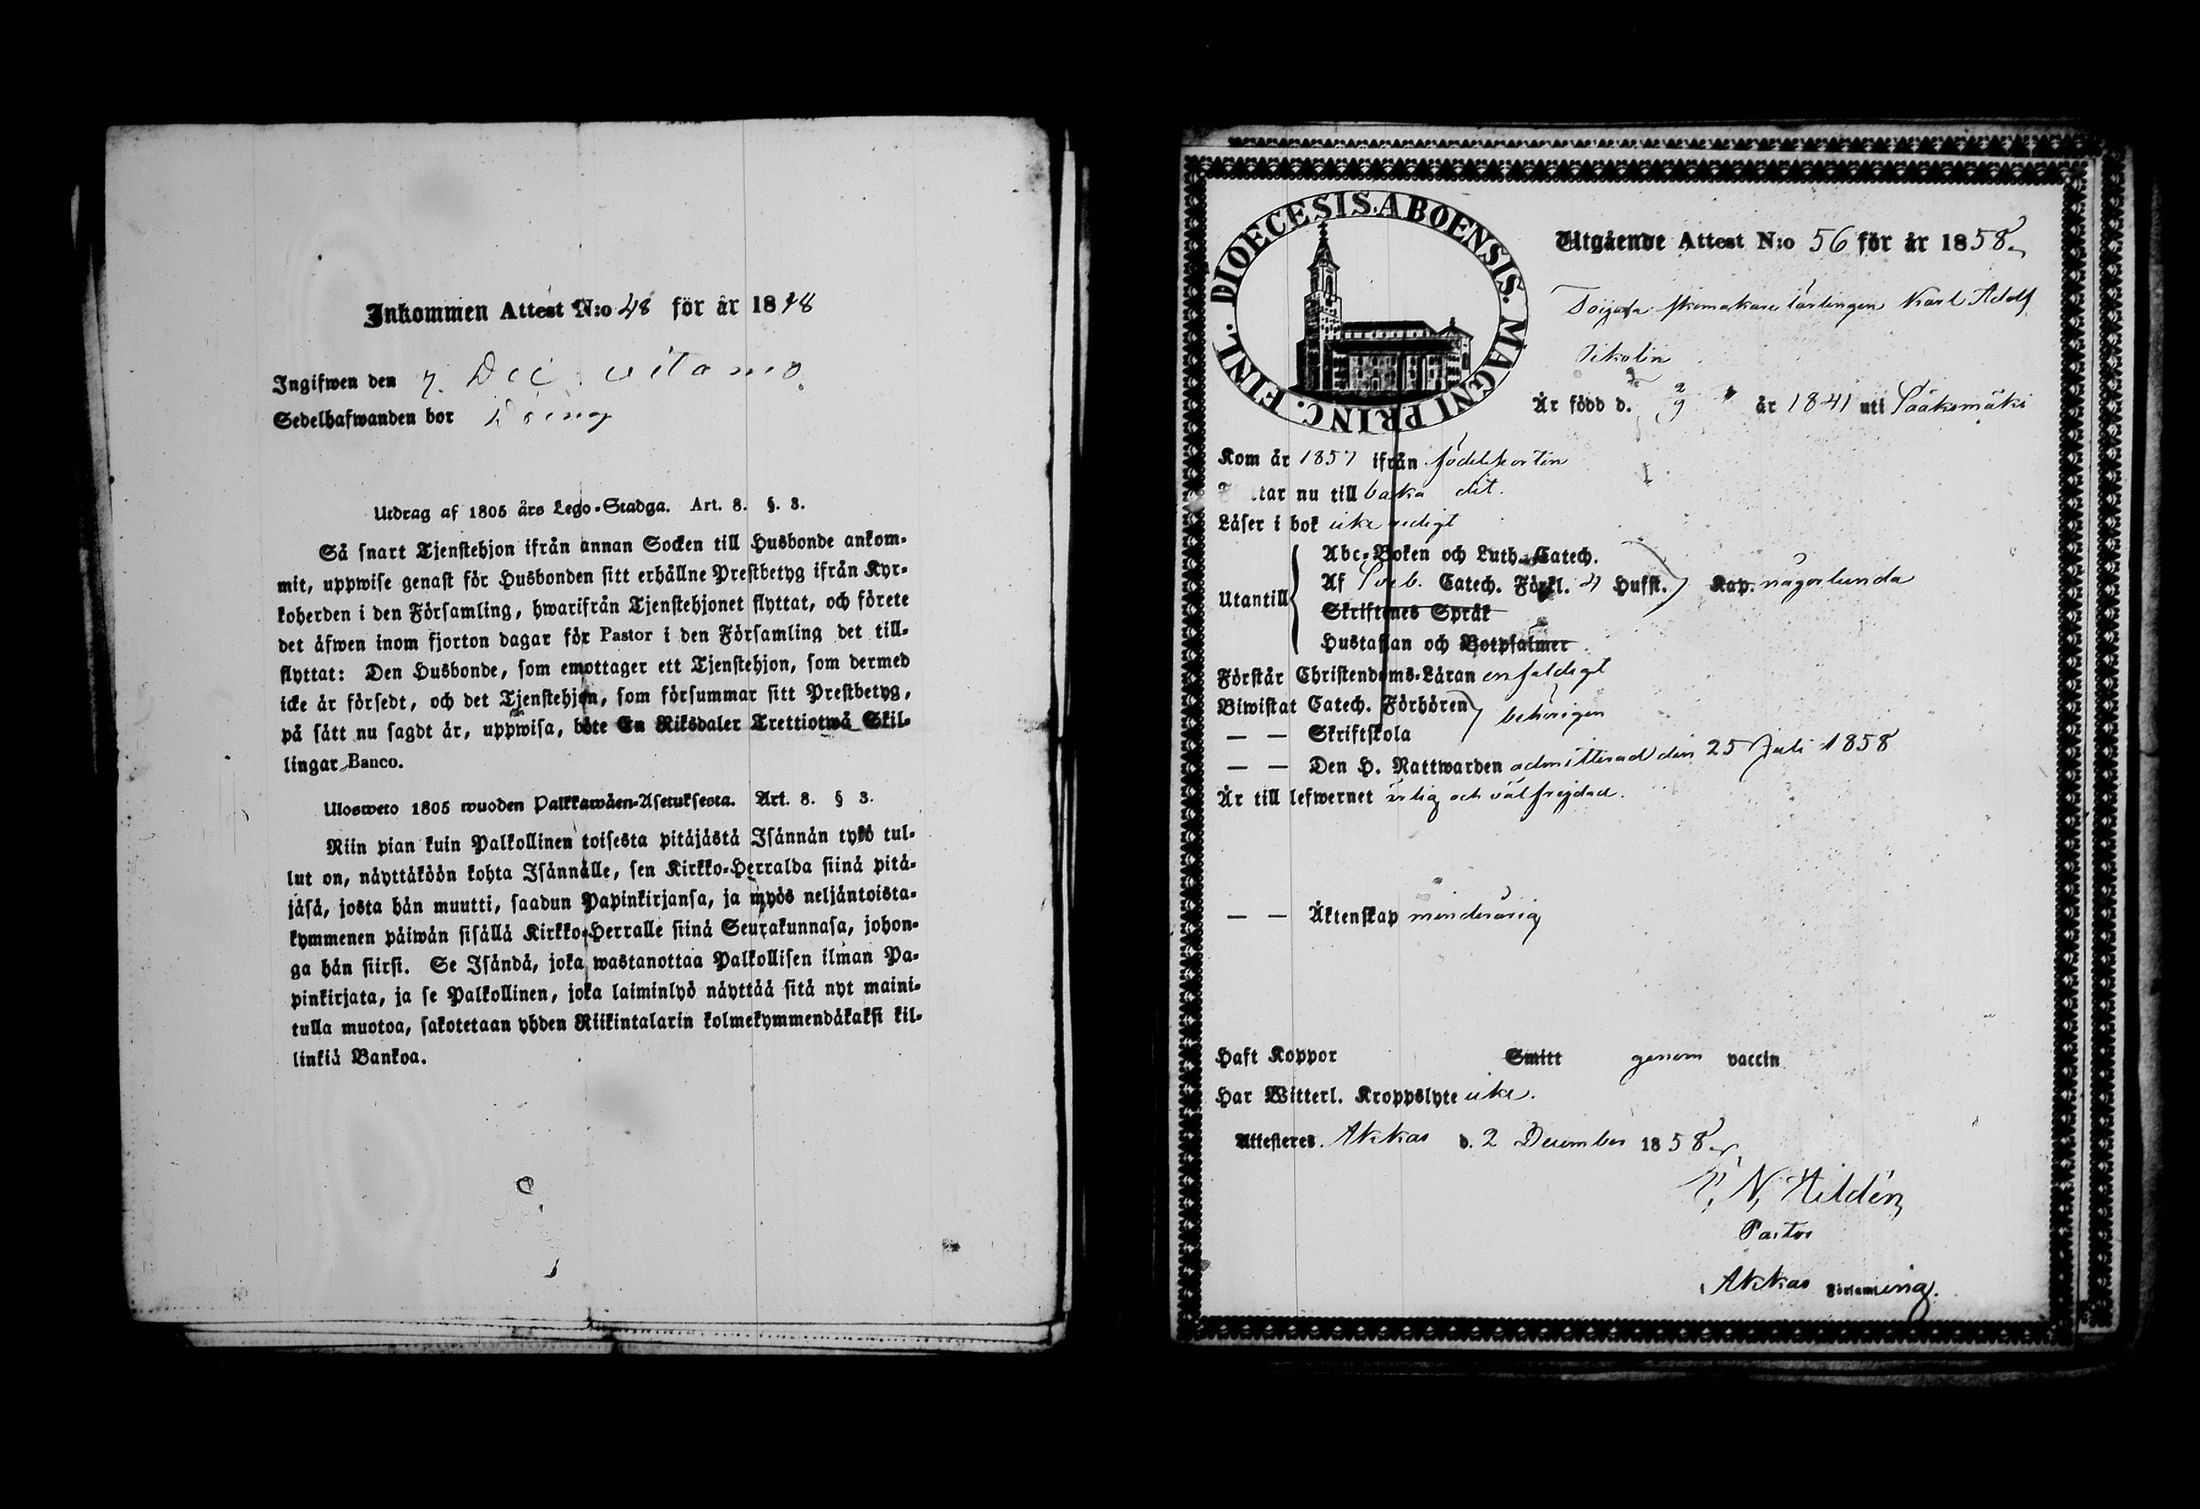 Inkommen Attest N:o 48 för år 18
Ingifwen den 7. Dec.
Sedelhafwanden bor
Utdrag af 1805 års Lego-Stadga. Art. 8. §. 3.
Så snart Tjenstehjon ifrån annan Socken till Husbonde ankom-
mit, uppwise genast för Husbonden sitt erhållne Prestbetyg ifrån Kyr-
koherden i den Församling, hwarifrån Tjenstehjonet flyttat, och förete
det äfwen inom fjorton dagar för Pastor i den Församling det till-
flyttat: Den Husbonde, som emottager ett Tjenstehjon, som dermed
icke är försedt, och det Tjenstehjon, som försummar sitt Prestbetyg,
på sätt nu sagdt är, uppwisa, böte En Riksdaler Trettiotwå Skil-
lingar Banco.
Ulosweto 1805 wuoden Palkkawäen-Asetuksesta. Art. 8. § 3.
Niin pian kuin Palkollinen toisesta pitäjästä Isännän tykö tul-
lut on, näyttäköön kohta Isännälle, sen Kirkko-Herralda siinä pitä-
jäsä, josta hän muutti, saadun Papinkirjansa, ja myös neljäntoista-
kymmenen päiwän sisällä Kirkko-Herralle siinä Seurakunnasa, johon-
ga hän siirsi. Se Isändä, joka wastanottaa Palkollisen ilman Pa-
pinkirjata, ja se Palkollinen, joka laiminlyö näyttää sitä nyt maini-
tulla muotoa, sakotetaan yhden Riikintalarin kolmekymmendäkaksi kil-
linkiä Bankoa.
DIOECESIS. ABOENSIS. MAGNI PRINC. FINL.
Utgående Attest N:o 56 för år 1858
Toijala skomakare lärlingen Karl Adolf
Är född d. 9 år 1841 uti Sääksmäki
Kom år 1857 ifrån födelseorten
tar nu till baka dit.
Läser i bok icke redigt
Utantill
Abc-Boken och Luth. Catech.
Af Sveb. Catech. Förkl. 4 Hufst. Kap. någorlunda
Skriftenes Språk
Hustaflan och Botpsalmer
Förstår Christendoms-Läran enfaldigt
Biwistat Catech. Förhören behörigen
— — Skriftskola
— — Den H. Nattwarden admitterad den 25 Juli 1858
Är till lefwernet ärlig och välfrejdad.
— — Äktenskap minderårig
Haft Koppor Smitt genom vaccin
Har Witterl. Kroppslyte icke.
Attesteres. Akkas d. 2 December 1858
N. Hildén
Pastor
Akkas Församling.